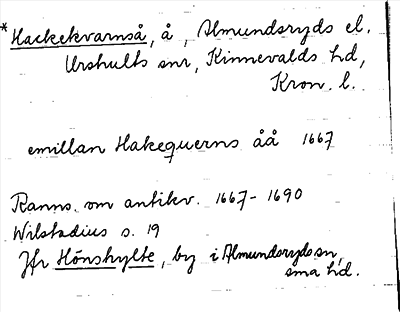 * Hackekvarnså, å, Almundsryds el.
Urshults snr, Kinnevalds hd,
Kron. l.
emillan Hakequerns åå 1667
Ranns. om antikv. 1667-1690
Wilstadius s. 19
Jfr Hönshylte, by i Almundsryds sn,
sma hd.